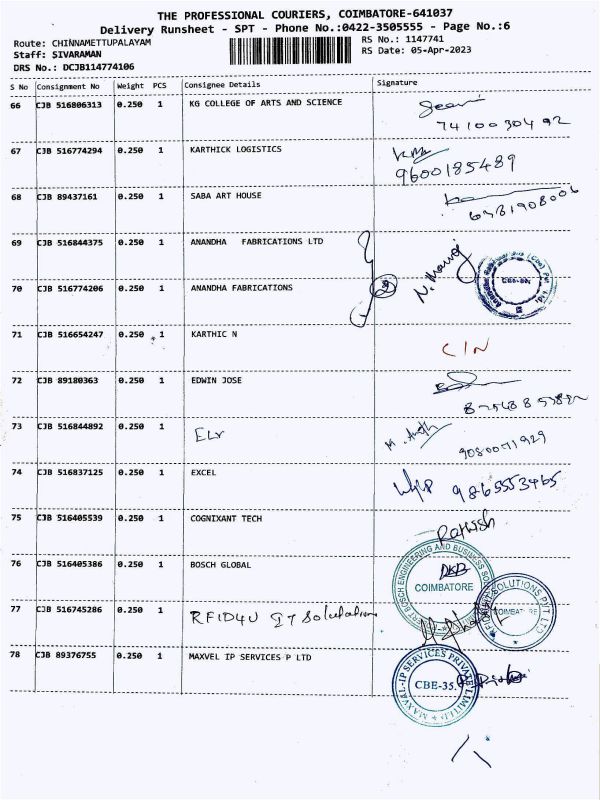 THE PROFESSIONAL COURIERS, COIMBATORE-641037
Delivery Runsheet - SPT - Phone No.:0422-3505555 - Page No.:6
Route: CHINNAMETTUPALAYAM RS No.: 1147741
Staff: SIVARAMAN RS Date: 05-Apr-2023
DRS No.: DCJB114774106
S No Consignment No Weight PCS Consignee Details Signature
66 CJB 516806313 0.250 1 KG COLLEGE OF ARTS AND SCIENCE
7410030492
67 CJB 516774294 0.250 1 KARTHICK LOGISTICS
9600185489
68 CJB 89437161 0.250 1 SABA ART HOUSE
6381908006
69 CJB 516844375 0.250 1 ANANDHA FABRICATIONS LTD
N. Manoj
70 CJB 516774206 0.250 1 ANANDHA FABRICATIONS
71 CJB 516654247 0.250 1 KARTHIC N
CIN
72 CJB 89180363 0.250 1 EDWIN JOSE
73 CJB 516844892 0.250 1 ELV
9080071929
74 CJB 516837125 0.250 1 EXCEL
9865553465
75 CJB 516405539 0.250 1 COGNIXANT TECH
Rathish
76 CJB 516405386 0.250 1 BOSCH GLOBAL
BOSCH ENGINEERING AND BUSINESS
COIMBATORE
77 CJB 516745286 0.250 1 RFID4U IT Solutions
SOLUTIONS PVT LTD
78 CJB 89376755 0.250 1 MAXVEL IP SERVICES P LTD
MAXVAL-IP SERVICES PRIVATE LIMITED
CBE-35.